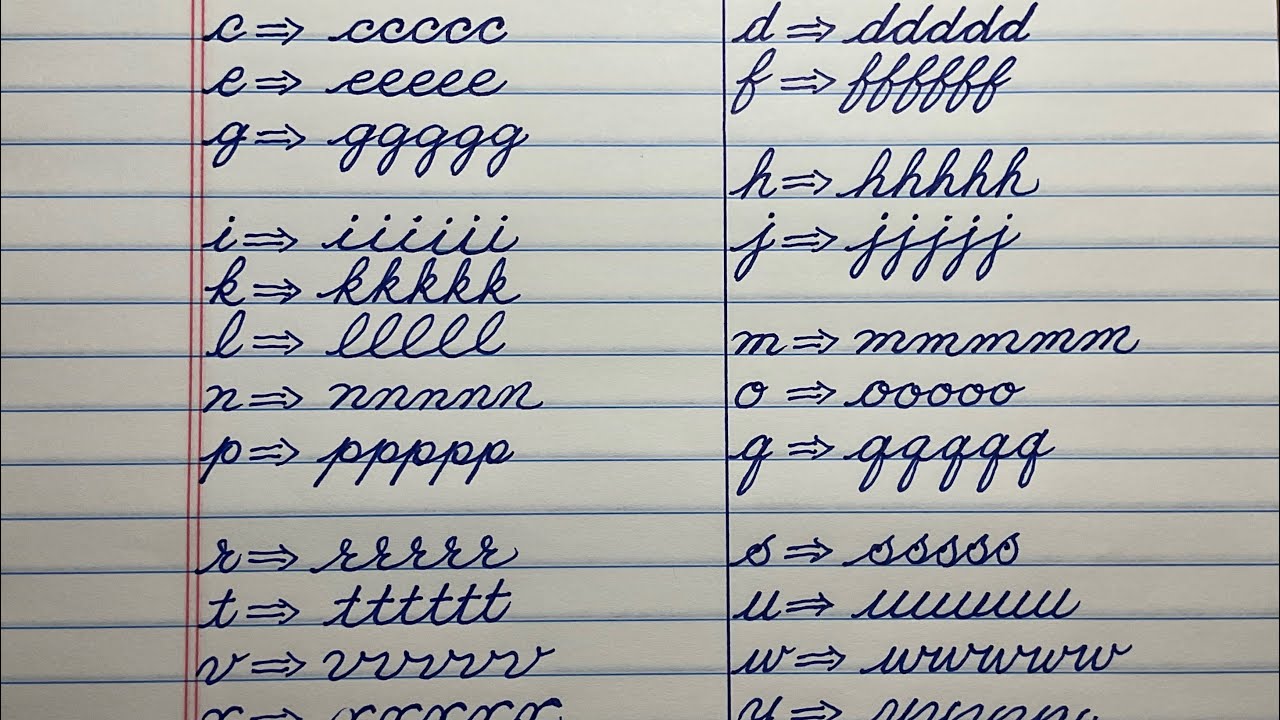 c ⇒ ccccc
d ⇒ ddddd
e ⇒ eeeee
f ⇒ ffffff
g ⇒ ggggg
h ⇒ hhhhh
i ⇒ iiiiii
j ⇒ jjjjj
k ⇒ kkkkk
l ⇒ lllll
m ⇒ mmmmm
n ⇒ nnnnn
o ⇒ ooooo
p ⇒ ppppp
q ⇒ qqqqq
r ⇒ rrrrr
s ⇒ sssss
t ⇒ tttttt
u ⇒ uuuuu
v ⇒ vvvvv
w ⇒ wwwww
x ⇒ xxxxx
y ⇒ yyyyy